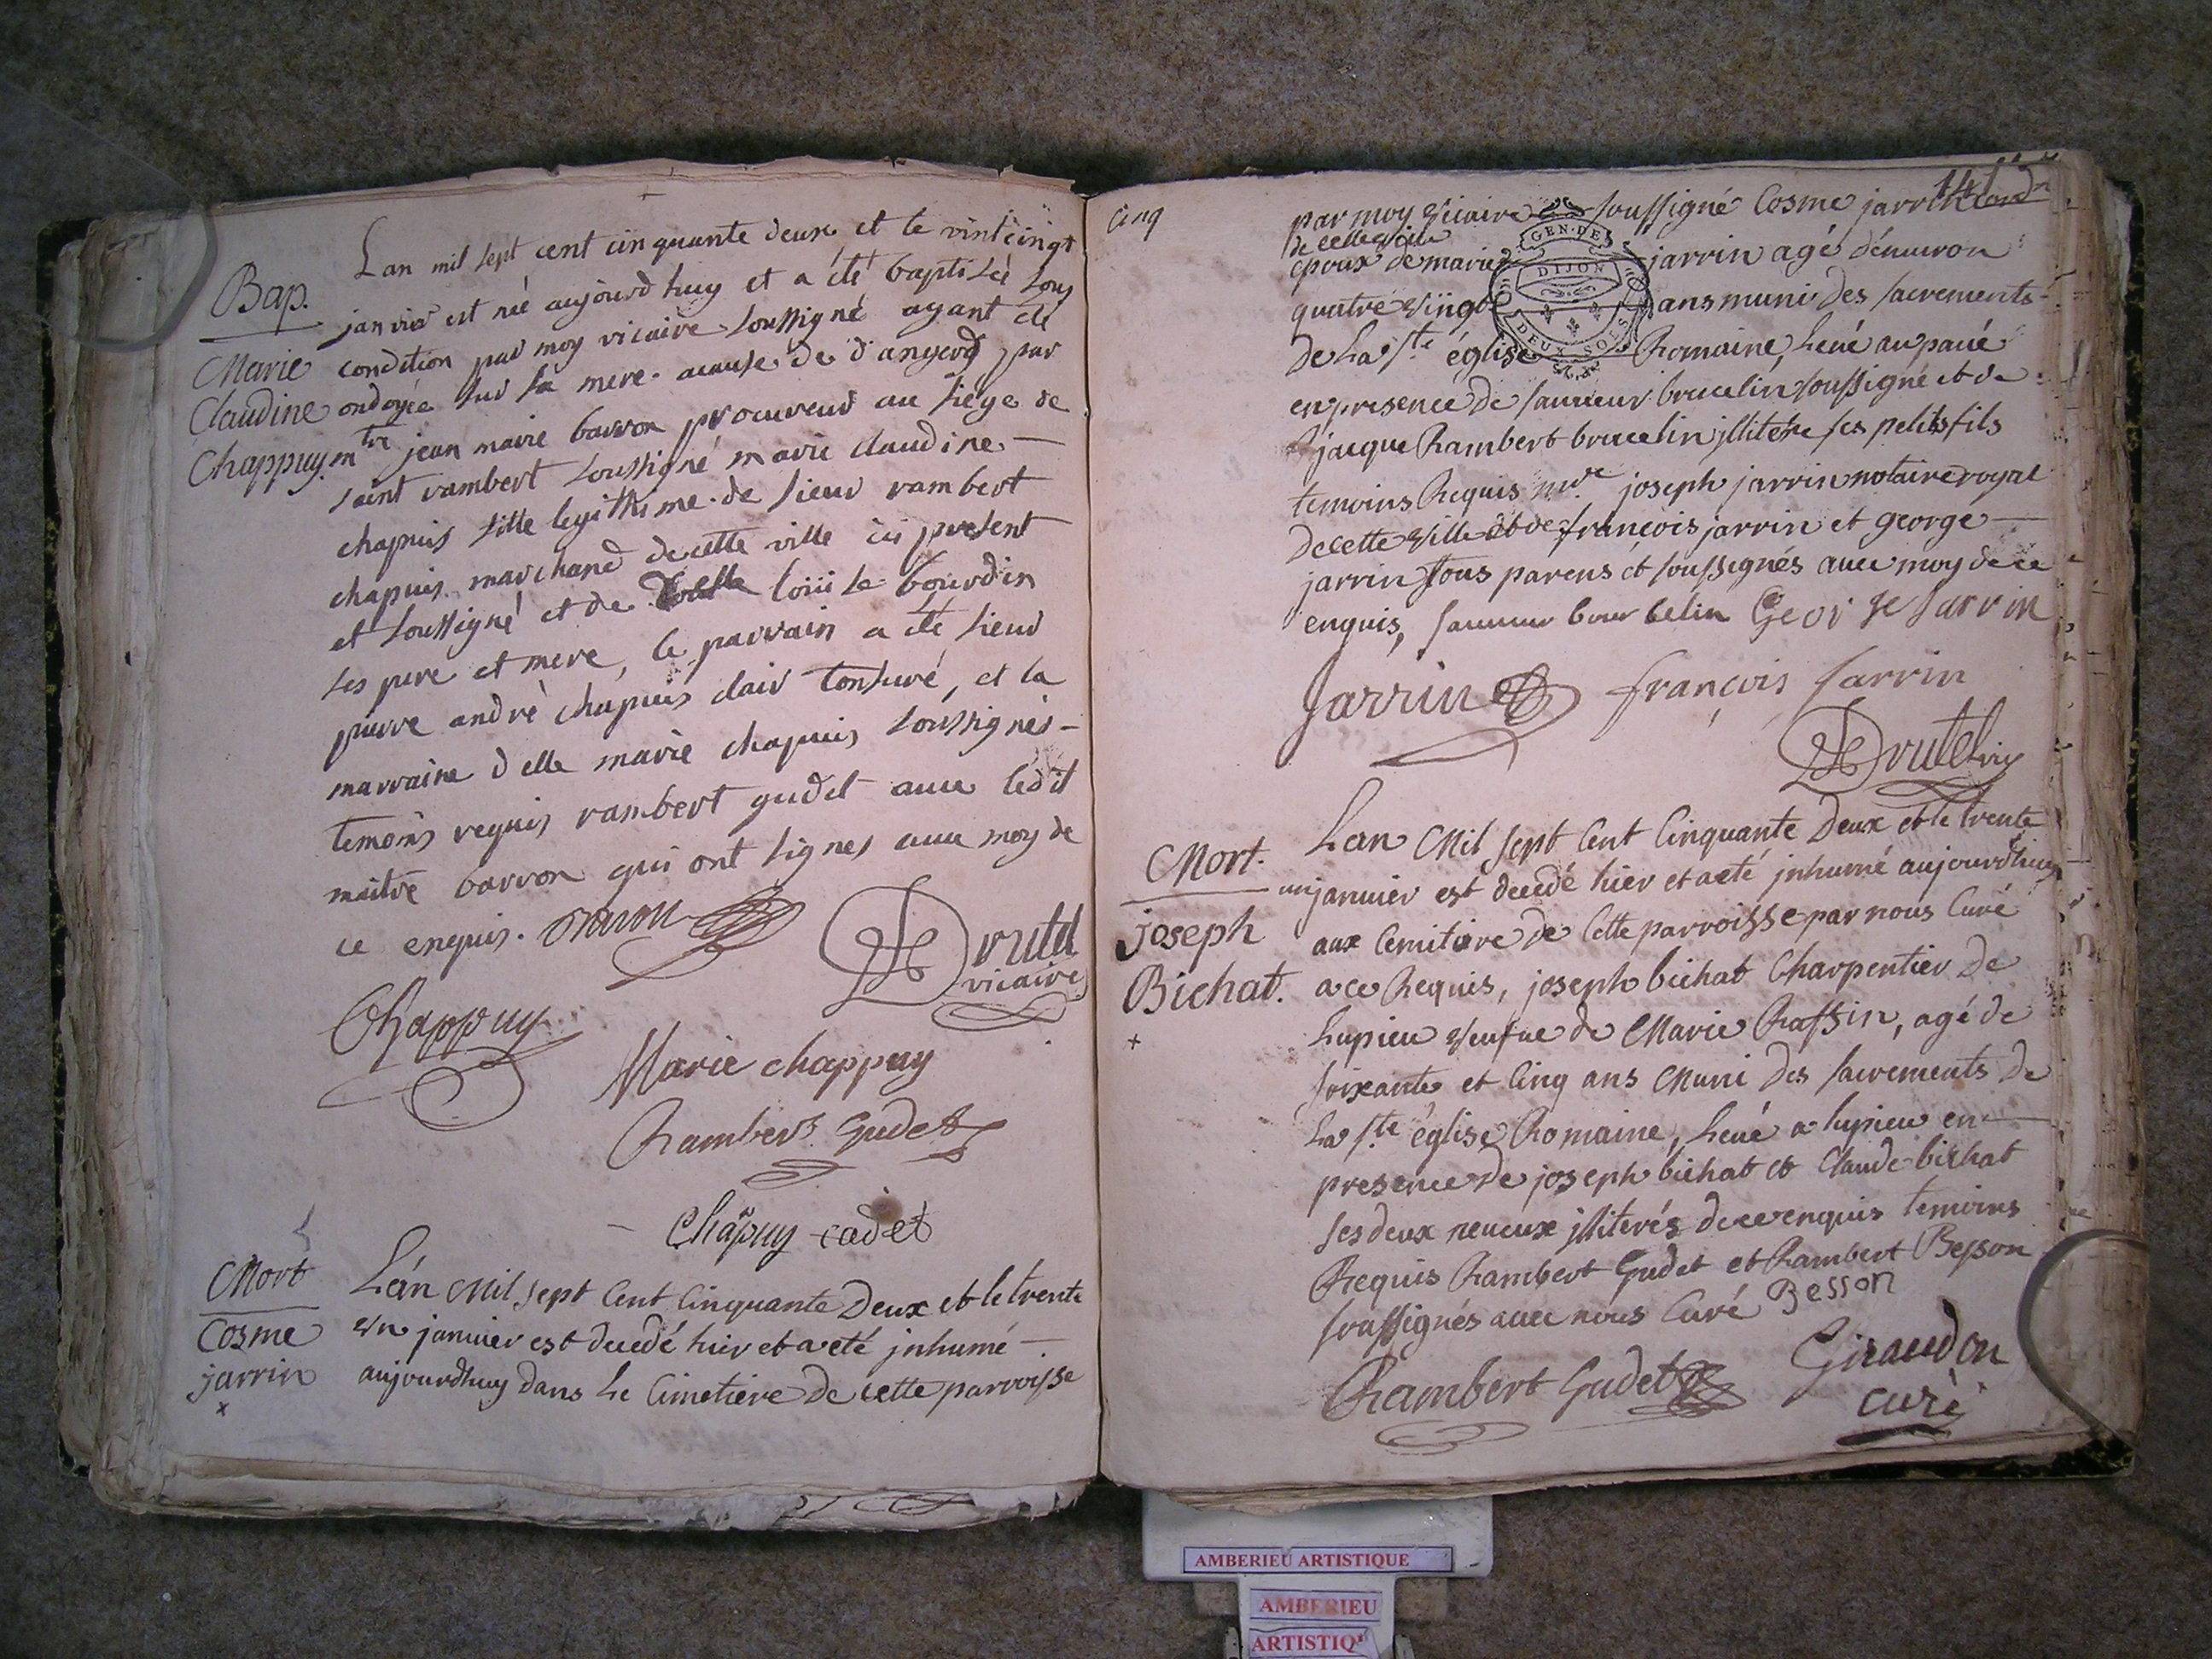 Bap.
Marie
Claudine
Chappuy.
Lan mil sept cent cinquante deux et le vintcinq
janvier est née aujourdhuy et a été baptisée sous
condition par moy vicaire soussigné ayant été
ondoyée sur sa mere acause de dangerd par
mtre jean marie barron procureur au siège de
saint rambert soussigné marie claudine
chapuis fille legithime de sieur rambert
chapuis marchand de cette ville ici present
et soussigné et de loüise bourdin
ses pere et mere, le parrain a été sieur
pierre andré chapuis clair tonsuré, et la
marraine delle marie chapuis soussignés
temoins requis rambert gudet avec ledit
maitre barron qui ont signes avec moy de
ce enquis. Baron
Drutel
vicaire
Chappuy
Marie chappuy
Rambert Gudet
Chapuy cadet
Mort
Cosme
jarrin
+
Lan Mil sept Cent Cinquante Deux et le trente
vn janvier est decedé hier et a eté jnhumé
aujourdhuy dans Le Cimetiere de cette parroisse
Cinq
141
par moy vicaire soussigné Cosme jarrin
de cette ville
epoux de marie jarrin agé dénuiron
quatre vingt ans muni des sacrements
de La Ste église Romaine, Leué au paué
en presence de soussigné et de
jacque Rambert jlliteré ses petits fils
temoins Requis joseph jarrin notaire royal
de cette ville et de francois jarrin et george
jarrin tous parens et soussignés auec moy de ce
enquis, George Jarrin
Jarrin françois Jarrin
Drutel vic
GEN. DE
DIJON
DEUX SOLS
Mort.
joseph
Bichat.
+
Lan Mil sept Cent Cinquante Deux et le trente
un janvier est decedé hier et a eté jnhumé aujourdhuy
aux Cemitiere de Cette parroisse par nous Curé
a ce Requis, joseph bichat Charpentier de
Lupieu veufue de Marie Rassin, agé de
soixante et Cinq ans Muni des sacrements de
La Ste église Romaine, Leué a lupieu en
presence de joseph bichat et Claude bichat
ses deux neueux jlliterés de ce enquis temoins
Requis Rambert Gudet et Rambert Besson
soussignés auec nous Curé Besson
Rambert Gudet
Giraudon
curé
AMBERIEU ARTISTIQUE
AMBERIEU
ARTISTIQ